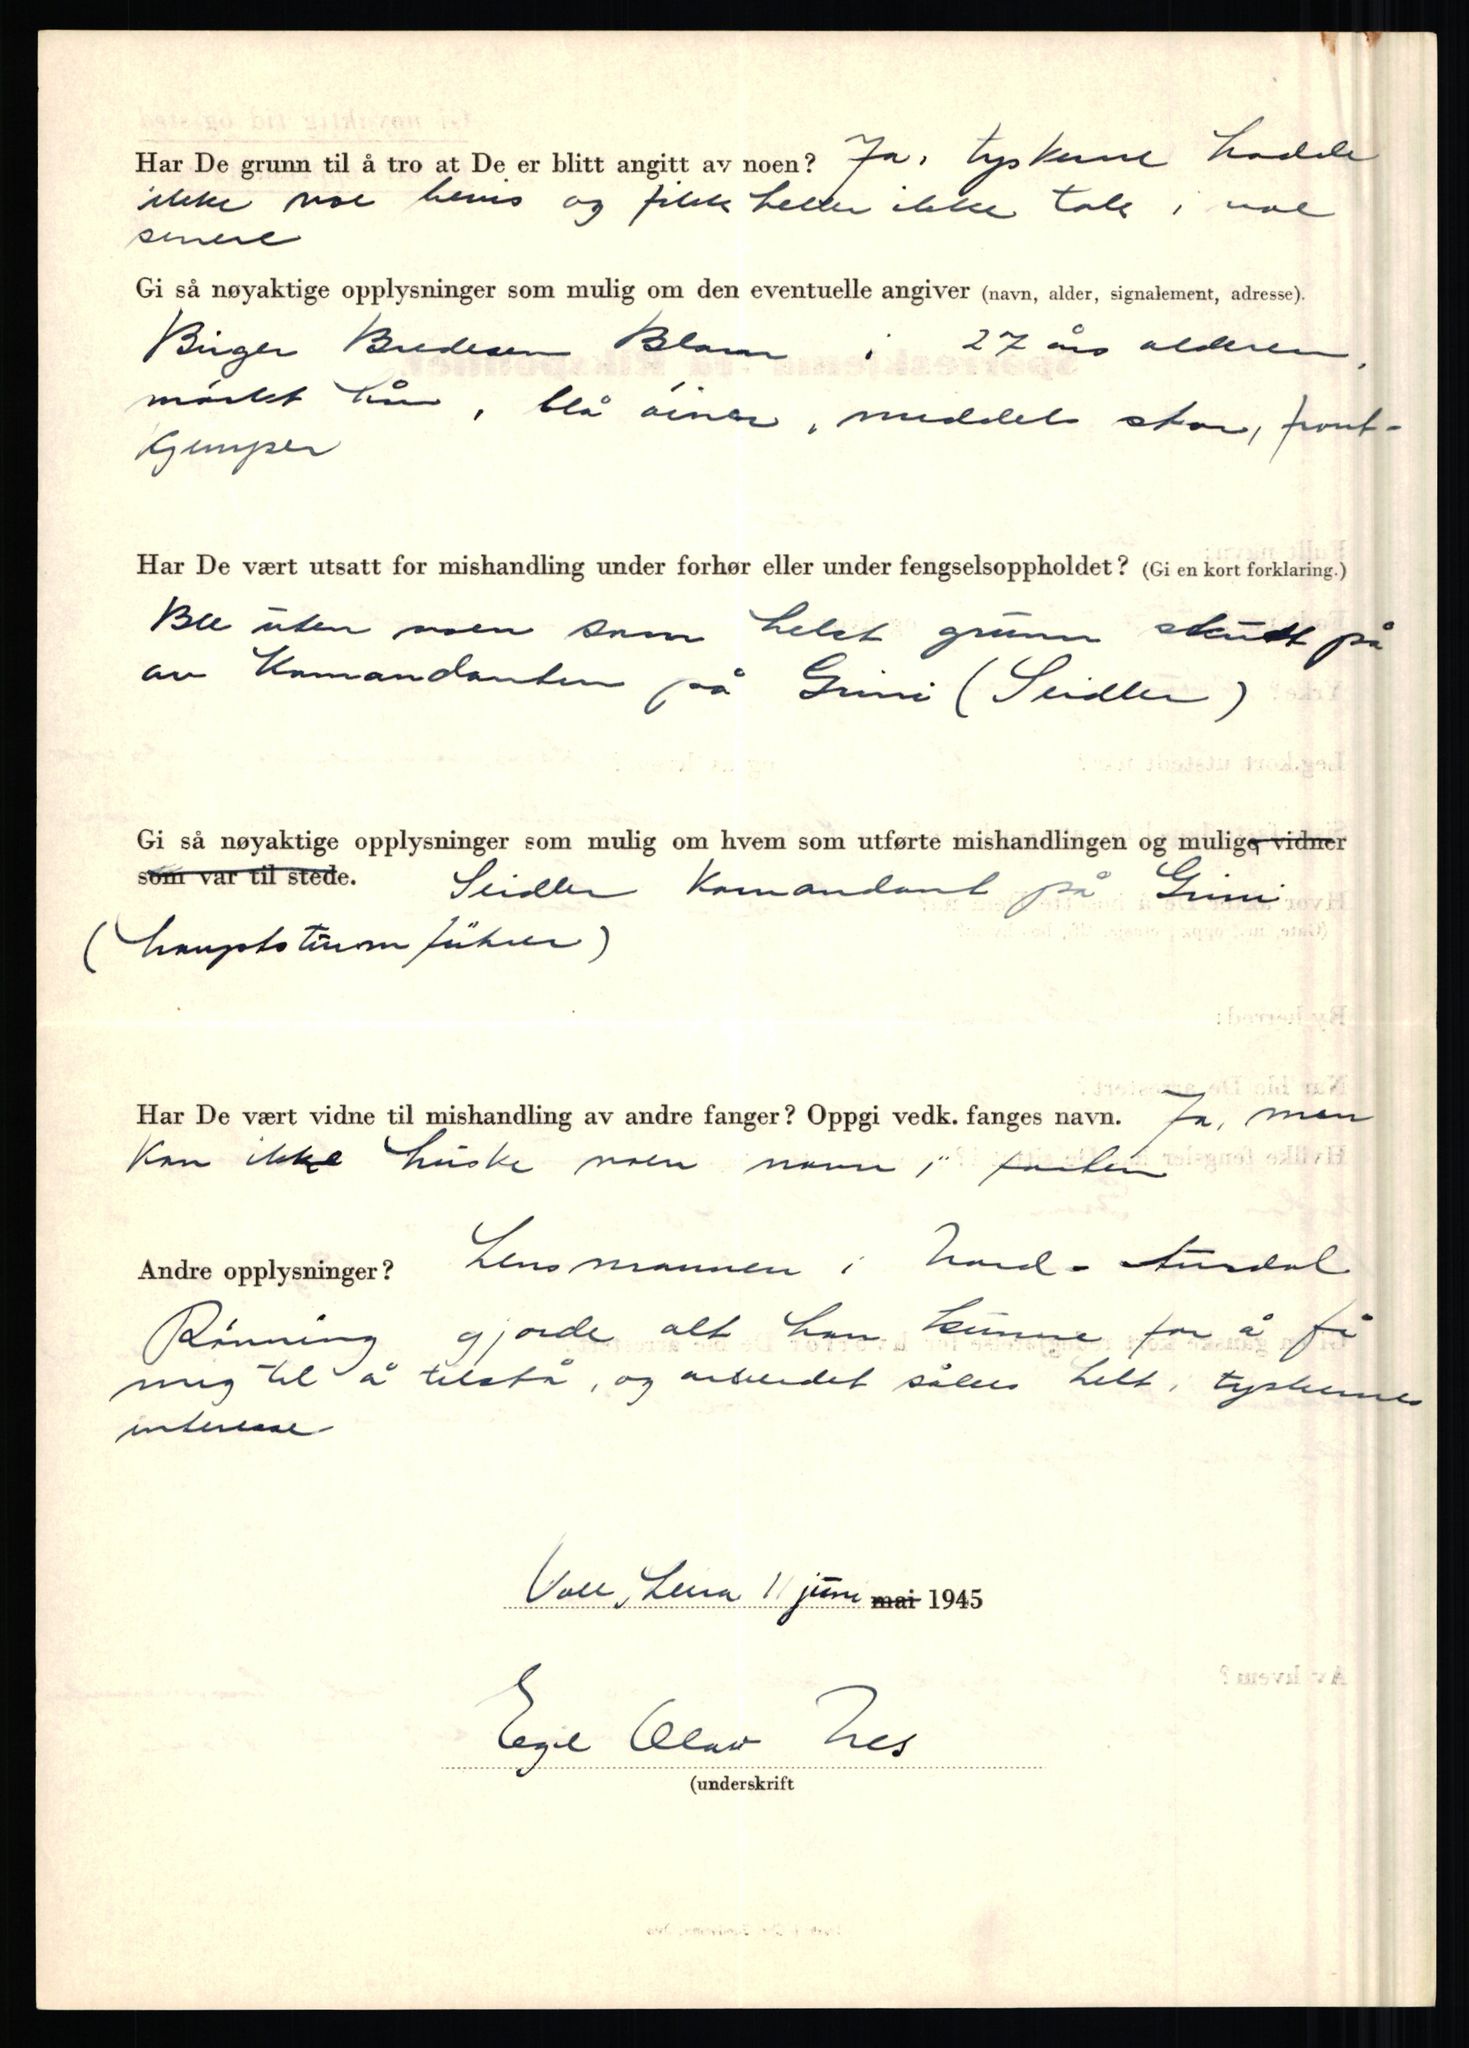 Har De grunn til å tro at De er blitt angitt av noen? Ja, tyskerne hadde
ikke noe bevis og fikk heller ikke tak i noe
senere
Gi så nøyaktige opplysninger som mulig om den eventuelle angiver (navn, alder, signalement, adresse).
Birger Bredesen Blom i 27 års alderen,
mörket hår, blå öiner, middels stor, front-
kjemper
Har De vært utsatt for mishandling under forhør eller under fengselsoppholdet? (Gi en kort forklaring.)
Ble uten noen som helst grunn skutt på
av Komandanten på Grini (Seidler)
Gi så nøyaktige opplysninger som mulig om hvem som utførte mishandlingen og mulige vidner
som var til stede. Seidler Komandant på Grini
(hauptsturmführer)
Har De vært vidne til mishandling av andre fanger? Oppgi vedk. fanges navn. Ja, men
kan ikke huske noen navn i farten
Andre opplysninger? Lensmannen i Nord-Aurdal
Rönning gjorde alt han kunne for å få
mig til å tilstå, og arbeidet således helt i tyskernes
interesse
Voll, Leira 11 juni mai 1945
Egil Olav Nes
(underskrift